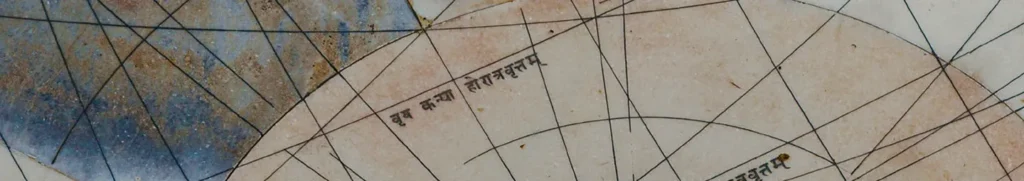 वृष कन्या होरात्रवृत्तम्
त्रवृत्तम्